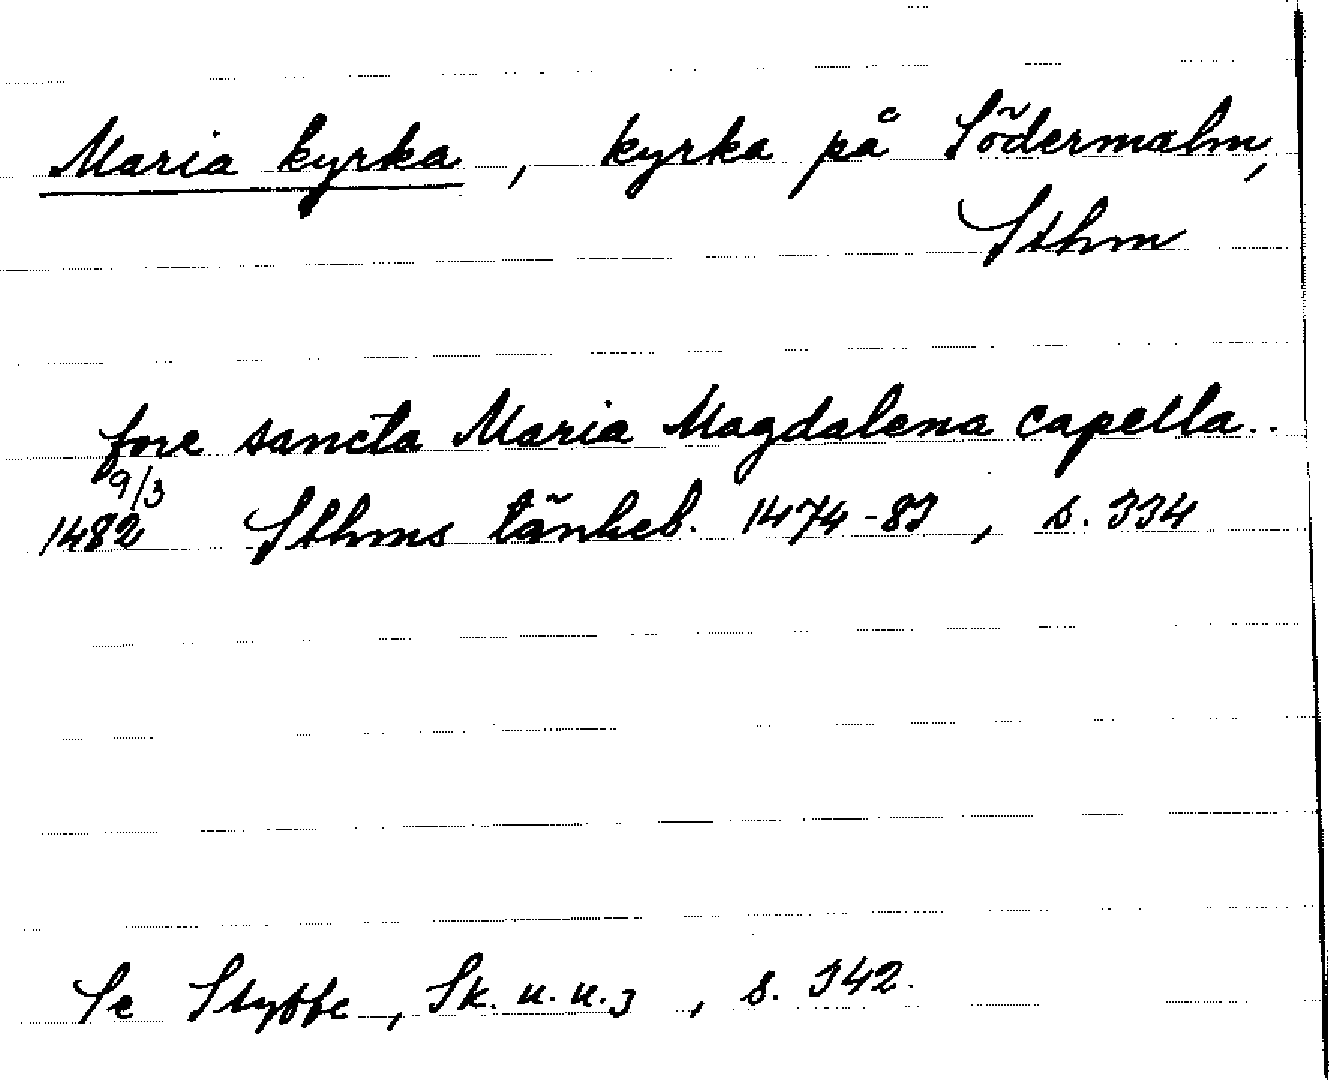 Maria kyrka, kyrka på Södermalm,
Sthm
fore sancta Maria Magdalena capella..
9/3
1482 Sthms tänkeb. 1474-83, s. 334
Se Styffe, Sk. u. u. 3, s. 342.